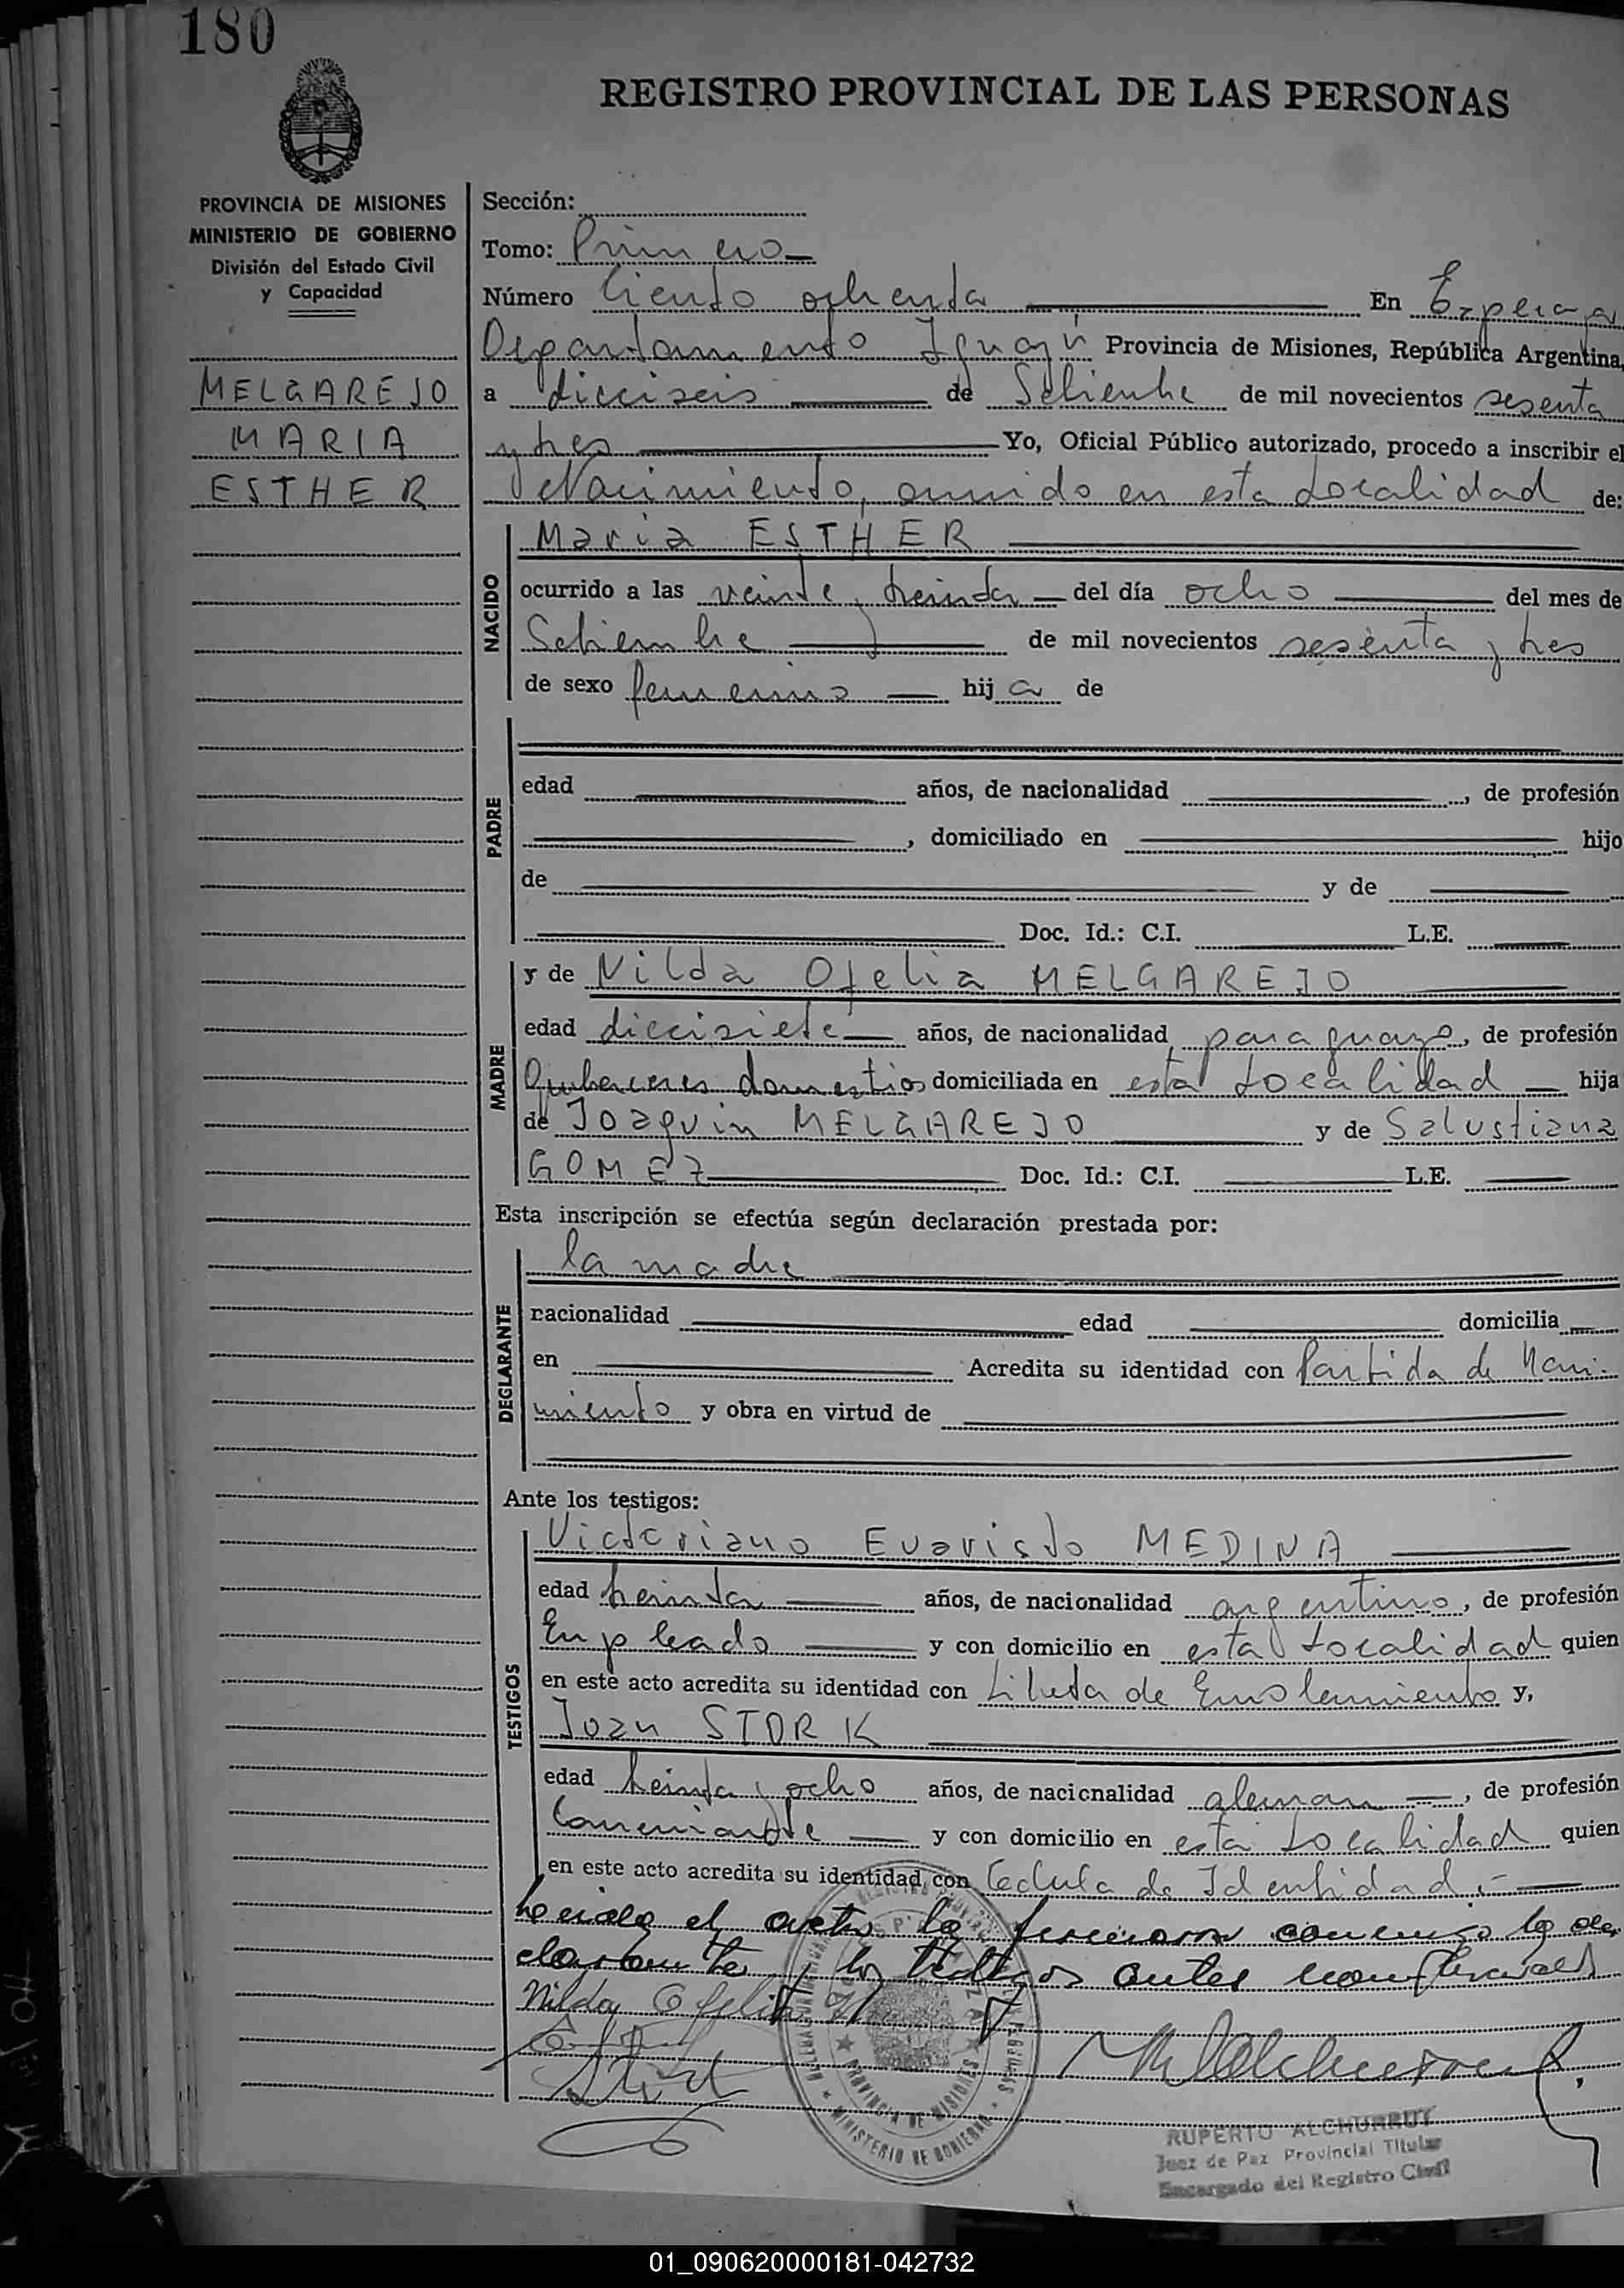 180
REGISTRO PROVINCIAL DE LAS PERSONAS
PROVINCIA DE MISIONES
MINISTERIO DE GOBIERNO
División del Estado Civil
y Capacidad
MELGAREJO
MARIA
ESTHER
Sección:
Tomo: Primero
Número Ciento ochenta En
Departamento Iguazú Provincia de Misiones, República Argentina,
a dieciseis de Setiembre de mil novecientos sesenta
y tres Yo, Oficial Público autorizado, procedo a inscribir el
Nacimiento, ocurrido en esta Localidad de:
NACIDO
Maria ESTHER
ocurrido a las veinte y treinta del día ocho del mes de
Setiembre de mil novecientos sesenta y tres
de sexo femenino hija de
PADRE
edad años, de nacionalidad , de profesión
, domiciliado en hijo
de y de
Doc. Id.: C.I. L.E.
MADRE
y de Nilda Ofelia MELGAREJO
edad diecisiete años, de nacionalidad paraguaya, de profesión
Quehaceres domestios domiciliada en esta Localidad hija
de Joaquin MELGAREJO y de Salustiana
GOMEZ Doc. Id.: C.I. L.E.
Esta inscripción se efectúa según declaración prestada por:
DECLARANTE
la madre
nacionalidad edad domicilia
en Acredita su identidad con Partida de Naci-
miento y obra en virtud de
Ante los testigos:
TESTIGOS
Victoriano Evaristo MEDINA
edad treinta años, de nacionalidad argentino, de profesión
Empleado y con domicilio en esta Localidad quien
en este acto acredita su identidad con Libreta de Enrolamiento y,
Joan STORK
edad treinta y ocho años, de nacionalidad aleman, de profesión
Comerciante y con domicilio en esta Localidad quien
en este acto acredita su identidad con Cedula de Identidad.-
Leida el acta la firmaron conmigo la de
clarante y los testigos antes mencionados
Nilda Ofelia
Stork
PROVINCIA DE MISIONES
MINISTERIO DE GOBIERNO
RUPERTO ALCHURRUT
Juez de Paz Provincial Titular
Encargado del Registro Civil
01_090620000181-042732